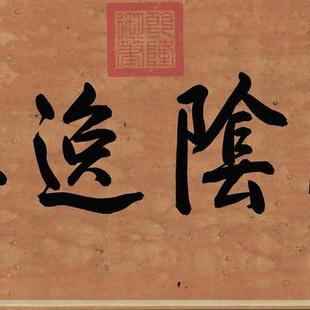 乾隆
御筆
陰逸